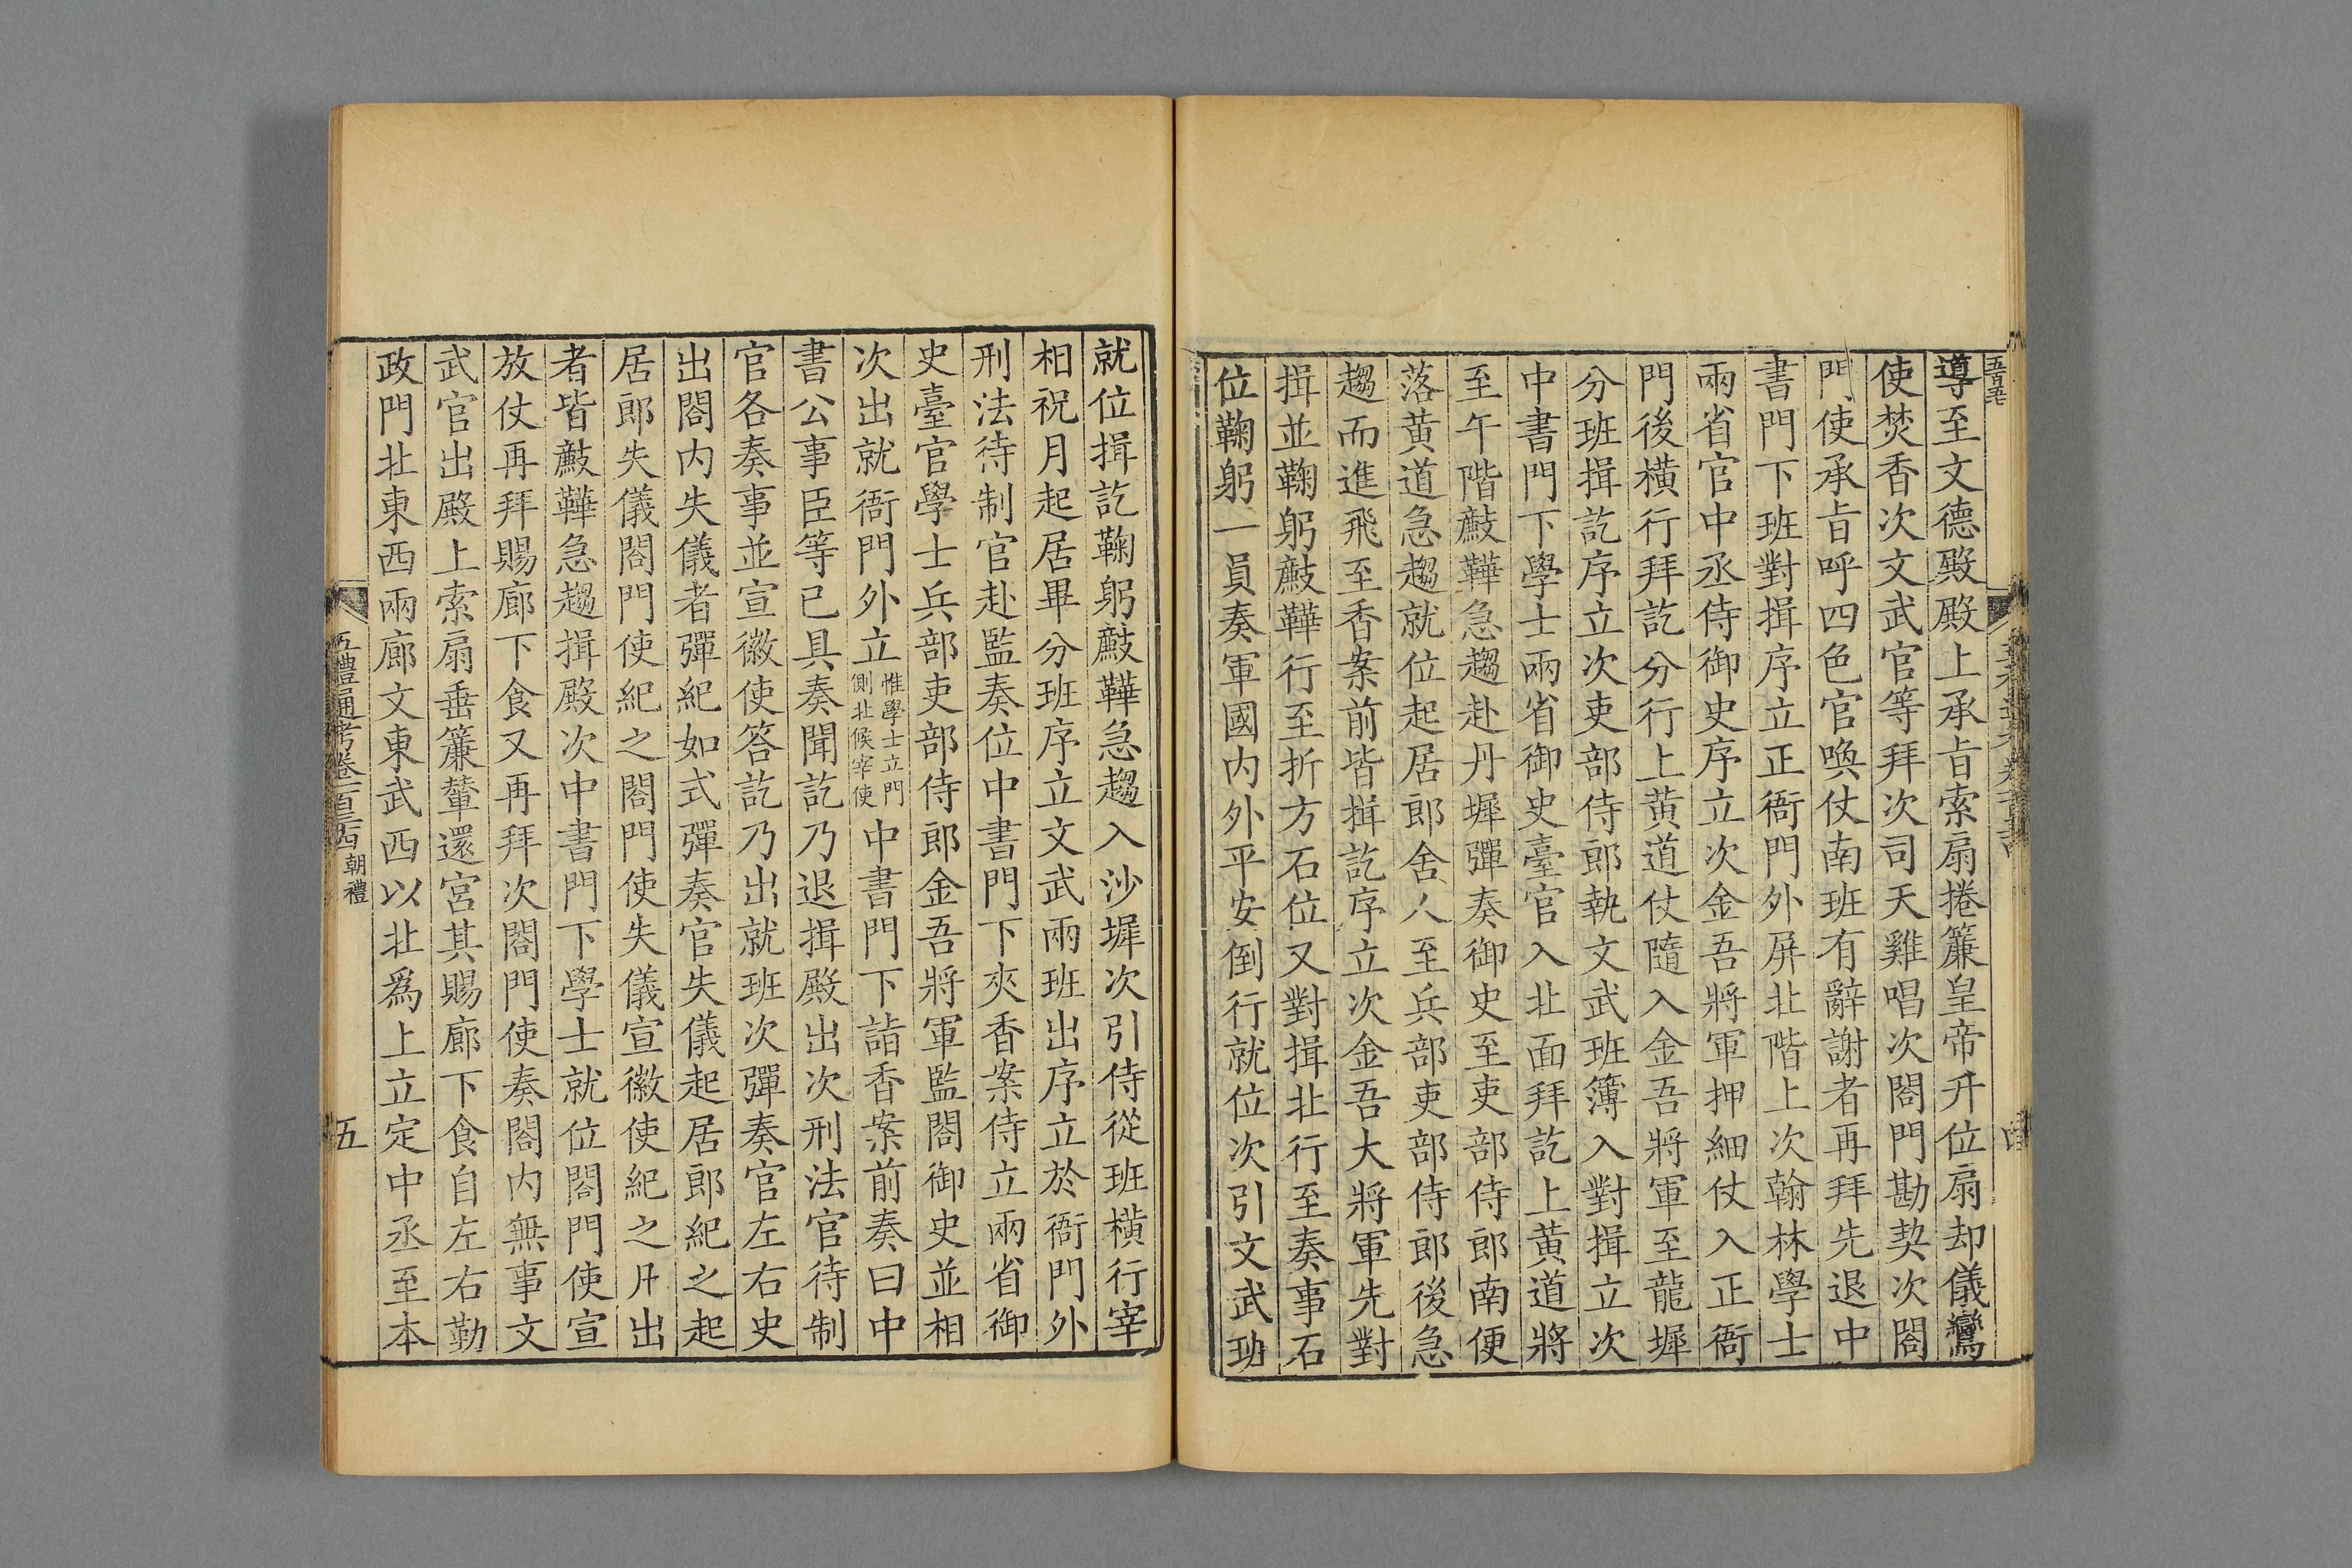 導至文德殿殿上承㫖索扇捲簾皇帝升位扇却儀鸞
使焚香次文武官等拜次司天雞唱次閤門勘契次閤
門使承㫖呼四色官喚仗南班有辭謝者再拜先退中
書門下班對揖序立正衙門外屏北階上次翰林學士
兩省官中丞侍御史序立次金吾將軍押細仗入正衙
門後橫行拜訖分行上黄道仗隨入金吾將軍至龍墀
分班揖訖序立次吏部侍郎執文武班簿入對揖立次
中書門下學士兩省御史臺官入北面拜訖上黄道將
至午階鼖鞾急趨赴丹墀彈奏御史至吏部侍郎南便
落黄道急趨就位起居郎舍人至兵部吏部侍郎後急
趨而進飛至香案前皆揖訖序立次金吾大將軍先對
揖並鞠躬鼖鞾行至折方石位又對揖北行至奏事石
位鞠躬一員奏軍國内外平安倒行就位次引文武班
就位揖訖鞠躬鼖鞾急趨入沙墀次引侍從班橫行宰
相祝月起居畢分班序立文武兩班出序立於衙門外
刑法待制官赴監奏位中書門下夾香案侍立兩省御
史臺官學士兵部吏部侍郎金吾將軍監閤御史並相
次出就衙門外立惟學士立門側北候宰使中書門下詣香案前奏曰中
書公事臣等已具奏聞訖乃退揖殿出次刑法官待制
官各奏事並宣徽使答訖乃出就班次彈奏官左右史
出閤内失儀者彈紀如式彈奏官失儀起居郎紀之起
居郎失儀閤門使紀之閤門使失儀宣徽使紀之凡出
者皆鼖鞾急趨揖殿次中書門下學士就位閤門使宣
放仗再拜賜廊下食又再拜次閤門使奏閤内無事文
武官出殿上索扇垂簾輦還宮其賜廊下食自左右勤
政門北東西兩廊文東武西以北爲上立定中丞至本
五禮通考卷一百三十四 朝禮 五